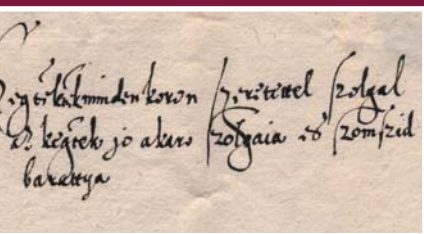 kegteknek minden koron szeretettel szolgal
az kegtek jo akaro szolgaia es szomszid
barattya